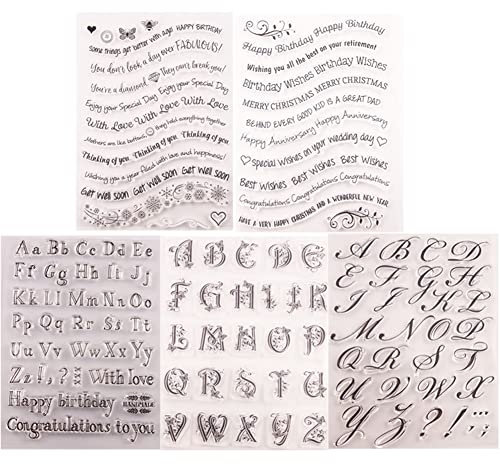 HAPPY BIRTHDAY
Some things get better with age
You don't look a day over FABULOUS!
You're a diamond
They can't break you!
Enjoy your Special Day Enjoy your Special Day
With Love With Love With Love
Mothers are like buttons they hold everything together
Thinking of you Thinking of you Thinking of you
Wishing you a year filled with love and happiness!
Get Well soon Get Well soon Get Well soon
Happy Birthday Happy Birthday
Wishing you all the best on your retirement
Birthday Wishes Birthday Wishes
MERRY CHRISTMAS MERRY CHRISTMAS
BEHIND EVERY GOOD KID IS A GREAT DAD
Happy Anniversary Happy Anniversary
special wishes on your wedding day
Best Wishes Best Wishes Best Wishes
Congratulations Congratulations Congratulations
HAVE A VERY HAPPY CHRISTMAS AND A WONDERFUL NEW YEAR
Aa Bb Cc Dd Ee
Ff Gg Hh Ii Jj
Kk Ll Mm Nn Oo
Pp Qq Rr Ss Tt
Uu Vv Ww Xx Yy
Zz ! , ? With love
Happy birthday HANDMADE
Congratulations to you
A B C D E
F G H I J K
L M N O P
Q R S T U
V W X Y Z
A B C D
E F G H
I J K L
M N O P
Q R S T
U V W X
Y Z ? ! , : ;